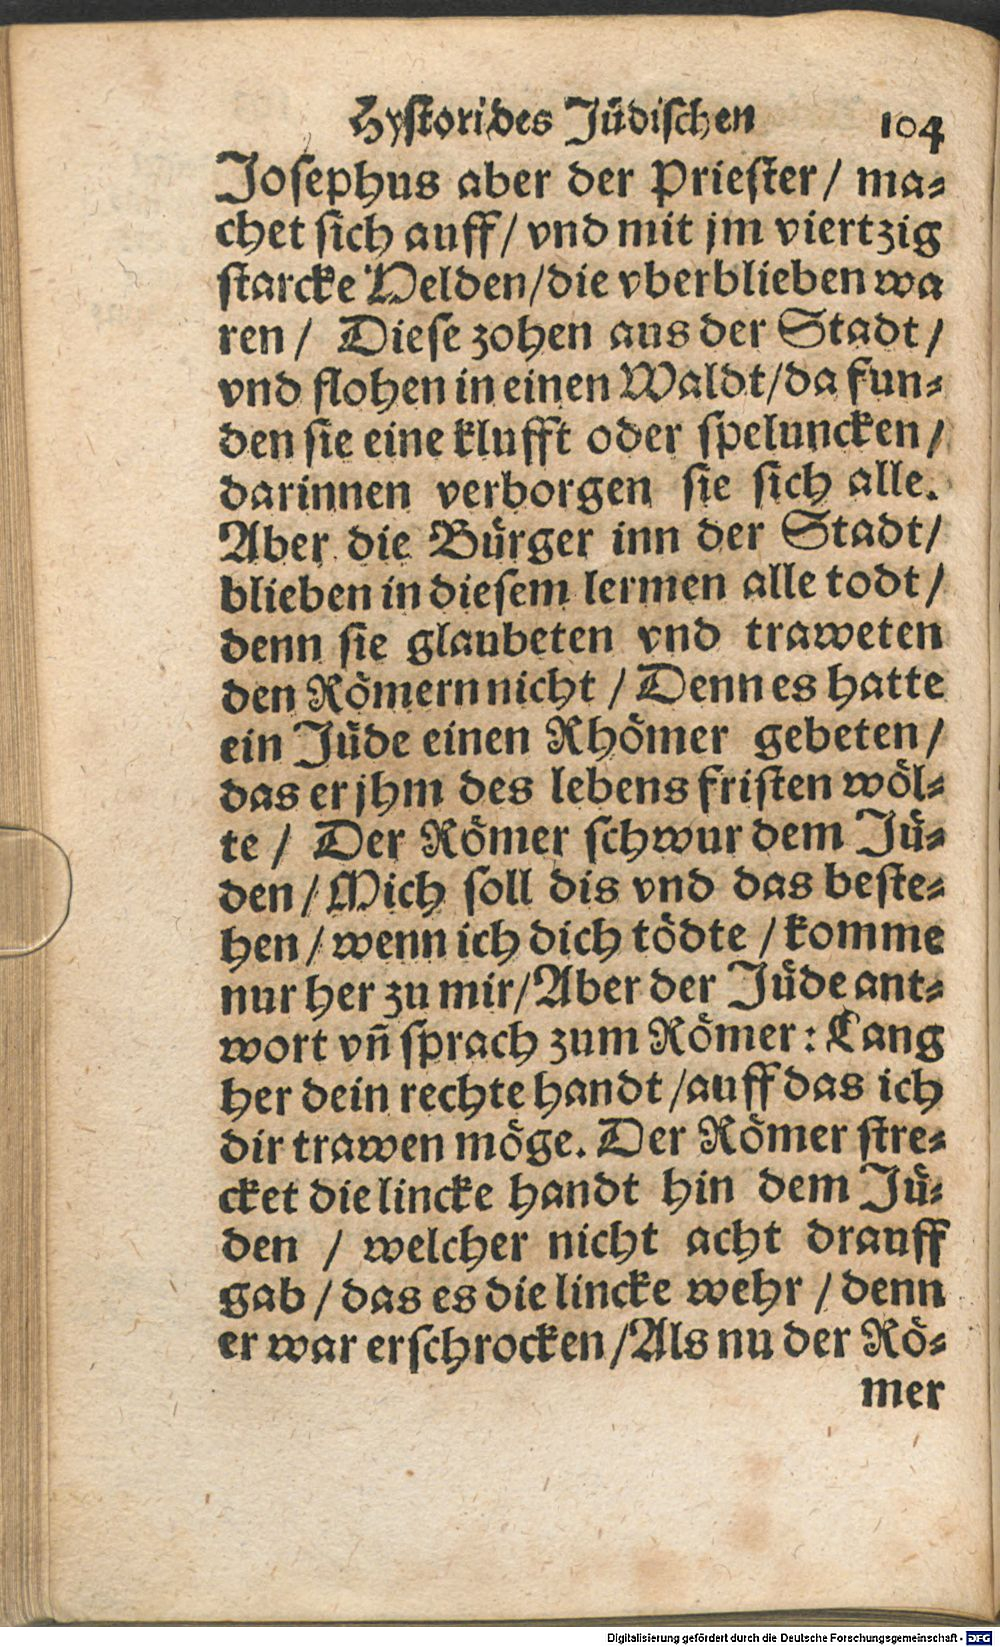 Hystori des Jüdischen 104
Josephus aber der Priester / ma⸗
chet sich auff / vnd mit jm viertzig
starcke Helden / die vberblieben wa
ren / Diese zohen aus der Stadt /
vnd flohen in einen Waldt / da fun⸗
den sie eine klufft oder speluncken /
darinnen verborgen sie sich alle.
Aber die Bürger inn der Stadt /
blieben in diesem lermen alle todt /
denn sie glaubeten vnd traweten
den Römern nicht / Denn es hatte
ein Jüde einen Rhömer gebeten /
das er jhm des lebens fristen wöl⸗
te / Der Römer schwur dem Jü⸗
den / Mich soll dis vnd das beste⸗
hen / wenn ich dich tödte / komme
nur her zu mir / Aber der Jüde ant⸗
wort vñ sprach zum Römer : Lang
her dein rechte handt / auff das ich
dir trawen möge. Der Römer stre⸗
cket die lincke handt hin dem Jü⸗
den / welcher nicht acht drauff
gab / das es die lincke wehr / denn
er war erschrocken / Als nu der Rö⸗
mer
Digitalisierung gefördert durch die Deutsche Forschungsgemeinschaft - DFG